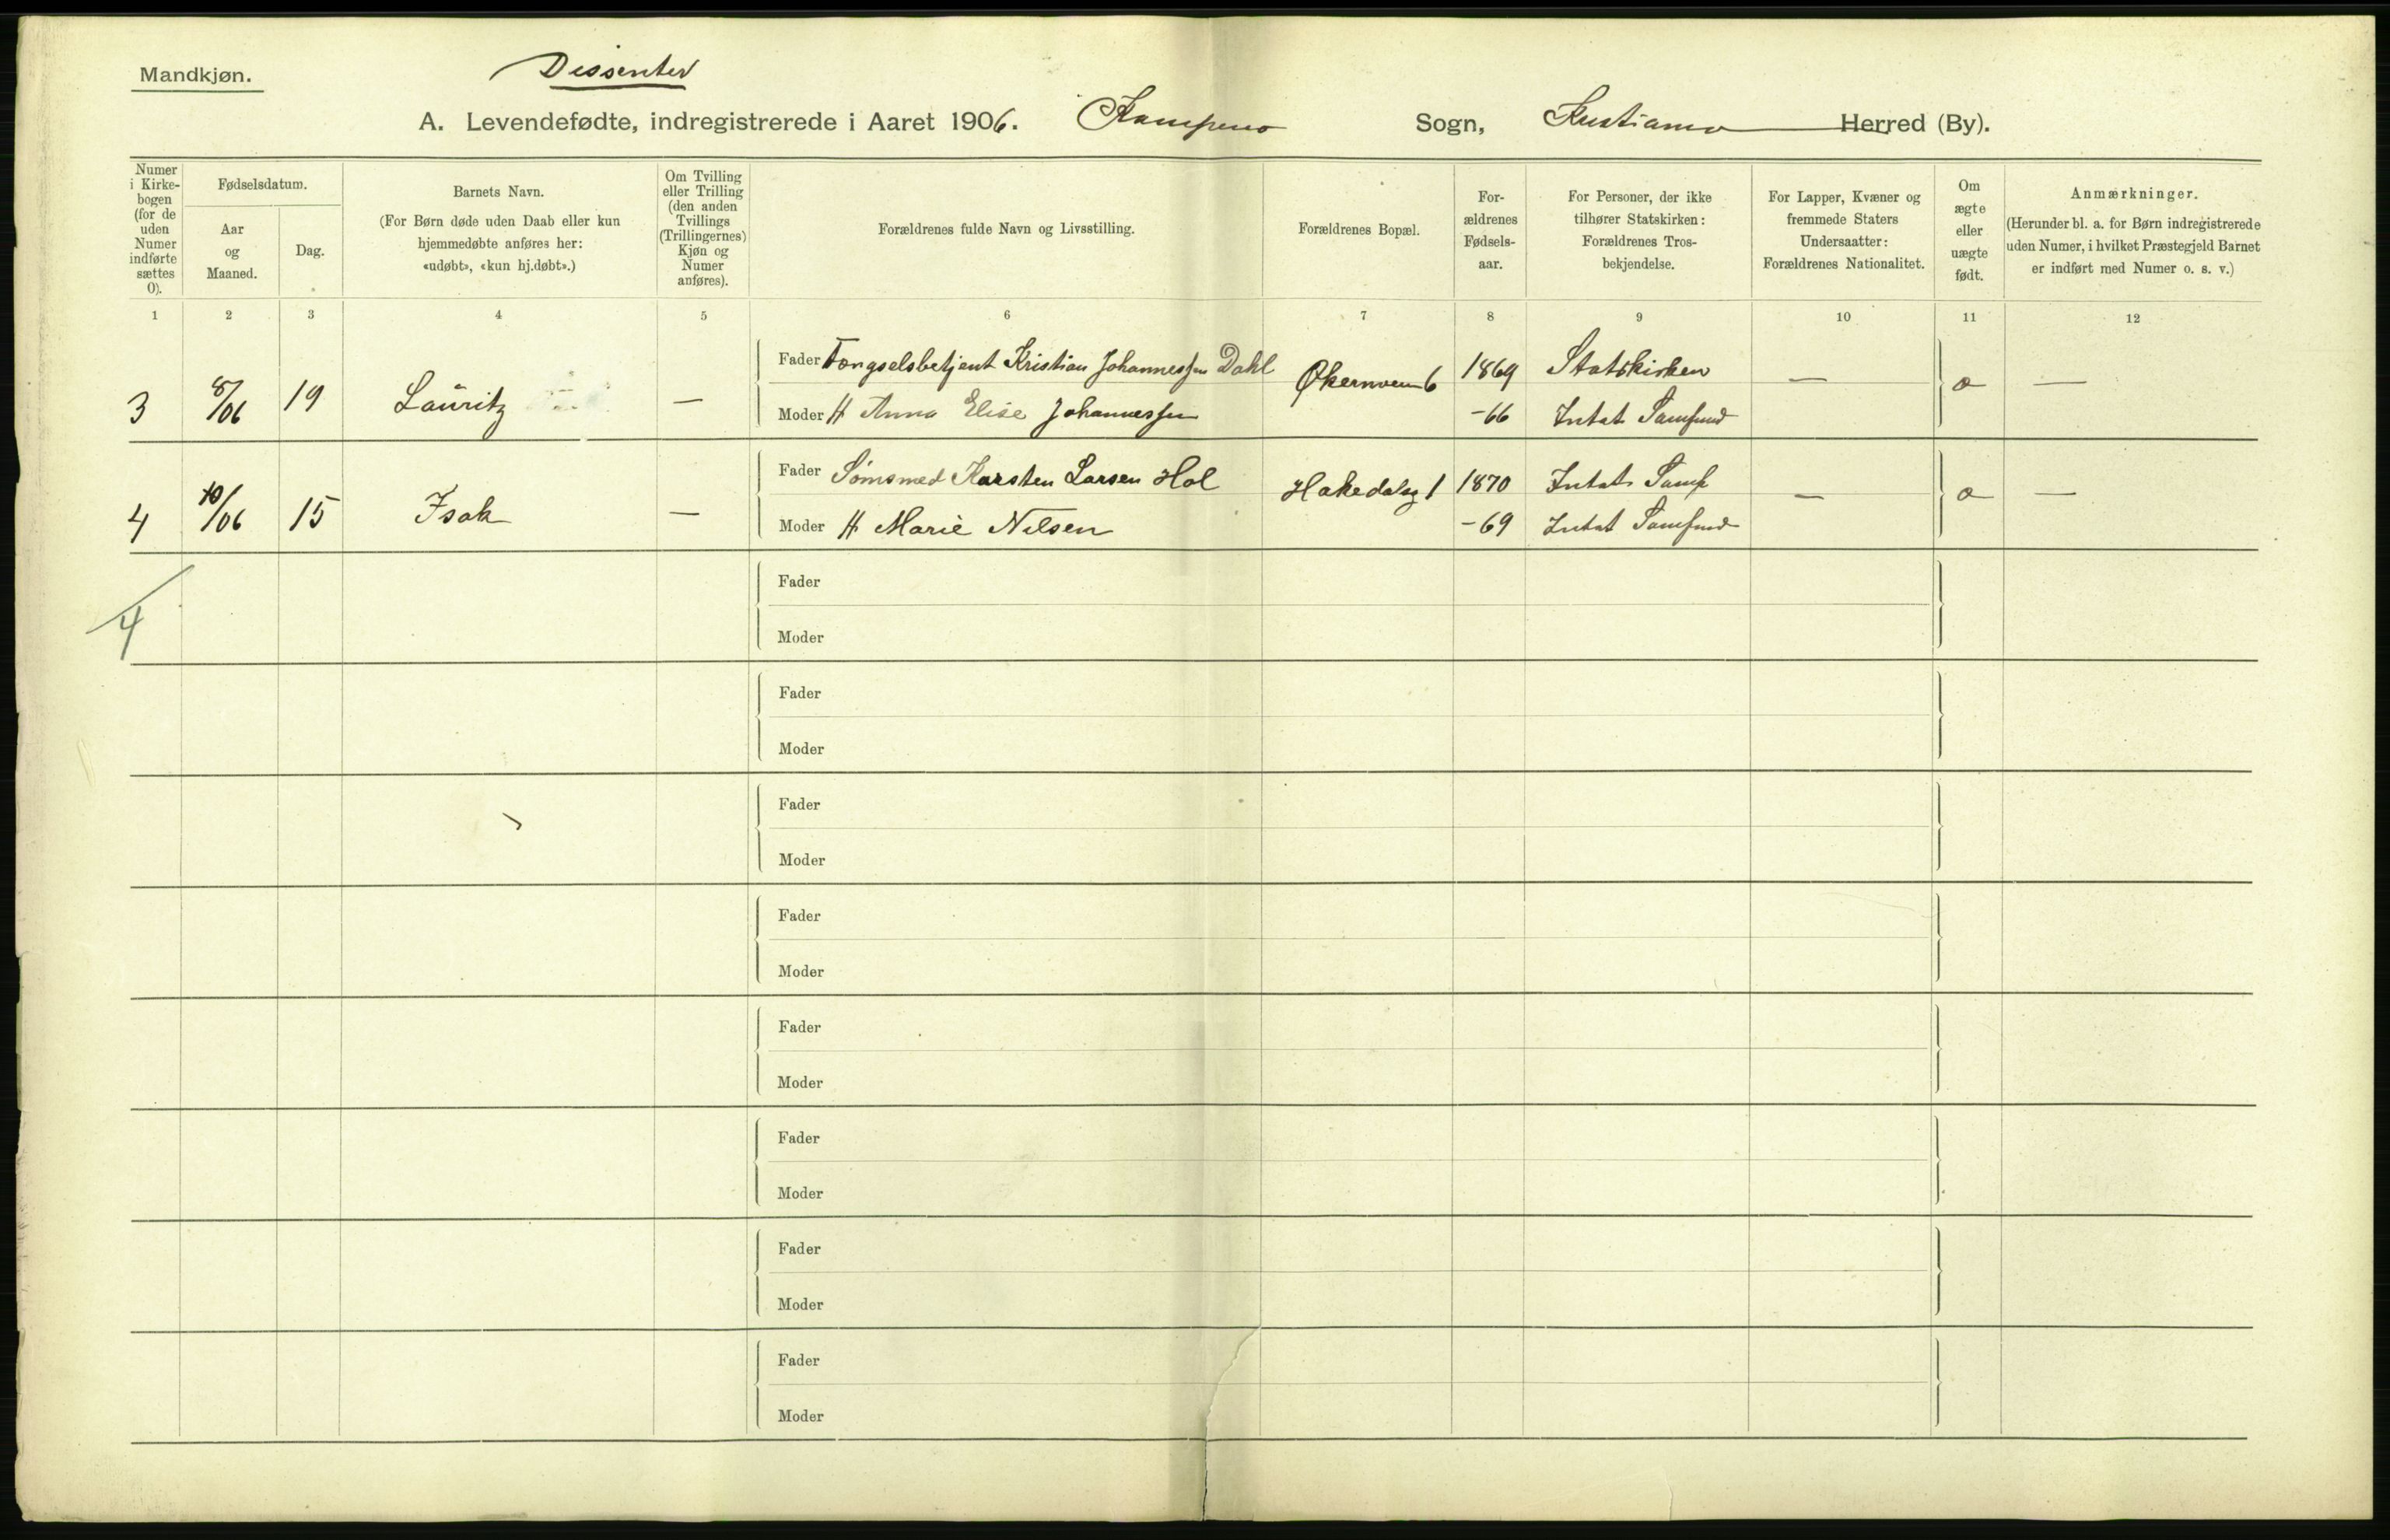 Mandkjøn.
Dissenter
A. Levendefødte, indregistrerede i Aaret 1906. Kampens Sogn, Kristiania Herred (By).
Numer i Kirke-bogen (for de uden Numer indførte sættes 0).
Fødselsdatum.
Aar og Maaned.
Dag.
Barnets Navn.
(For Børn døde uden Daab eller kun hjemmedøbte anføres her: «udøbt», «kun hj.døbt».)
Om Tvilling eller Trilling (den anden Tvillings (Trillingernes) Kjøn og Numer anføres).
Forældrenes fulde Navn og Livsstilling.
Forældrenes Bopæl.
For-ældrenes Fødsels-aar.
For Personer, der ikke tilhører Statskirken: Forældrenes Tros-bekjendelse.
For Lapper, Kvæner og fremmede Staters Undersaatter: Forældrenes Nationalitet.
Om ægte eller uægte født.
Anmærkninger.
(Herunder bl. a. for Børn indregistrerede uden Numer, i hvilket Præstegjeld Barnet er indført med Numer o. s. v.)
1 2 3 4 5 6 7 8 9 10 11 12
3 8/06 19 Lauritz — Fader Fængselsbetjent Kristian Johannessen Dahl Økernveien 6 1869 Statskirken — æ —
Moder H Anna Elise Johannessen -66 Intet Samfund
4 10/06 15 Isak — Fader Sömsmed Karsten Larsen Hol Hakedalsg 1 1870 Intet Samf — æ —
Moder H Marie Nilsen -69 Intet Samfund
4
Fader
Moder
Fader
Moder
Fader
Moder
Fader
Moder
Fader
Moder
Fader
Moder
Fader
Moder
Fader
Moder